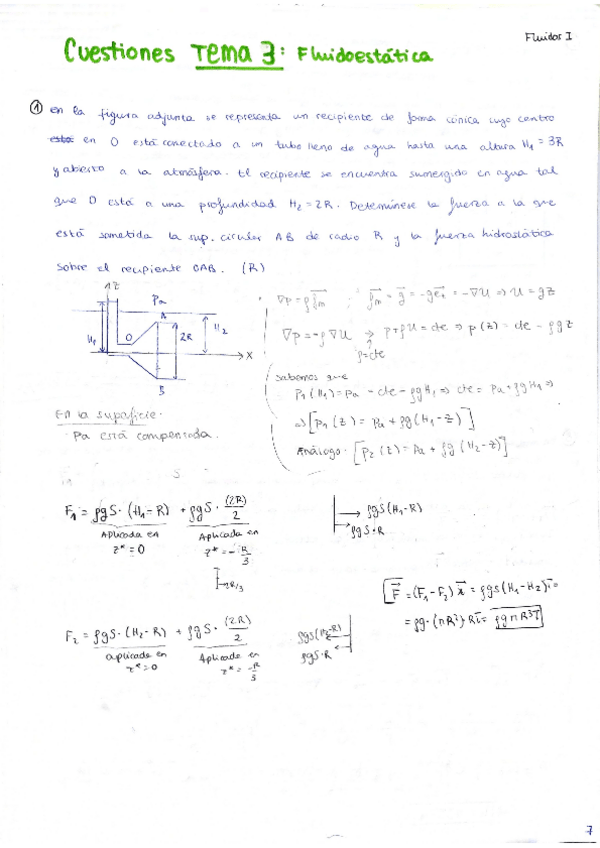 Fluidos I
Cuestiones TEMA 3: Fluidoestática
① En la figura adjunta se representa un recipiente de forma cónica cuyo centro
está en O está conectado a un tubo lleno de agua hasta una altura H₁ = 3R
y abierto a la atmósfera. El recipiente se encuentra sumergido en agua tal
que O está a una profundidad H₂ = 2R. Determínese la fuerza a la que
está sometida la sup. circular AB de radio R y la fuerza hidrostática
sobre el recipiente OAB. (R)
z
Pa
A
H₁
O
2R
H₂
x
B
∇p = ρf⃗m ; f⃗m = g⃗ = -ge⃗z = -∇U ⇒ U = gz
∇p = -ρ∇U → p + ρU = cte ⇒ p(z) = cte - ρgz
ρ=cte
Sabemos que
P₁(H₁) = Pa = cte - ρgH₁ ⇒ cte = Pa + ρgH₁ ⇒
⇒ [P₁(z) = Pa + ρg(H₁-z)]
Análogo: [P₂(z) = Pa + ρg(H₂-z)]
En la superficie:
Pa está compensada.
F₁ = ρgS·(H₁-R) + ρgS·(2R)/2
Aplicada en z* = 0
Aplicada en z* = -R/3
2R/3
ρgS(H₁-R)
ρgS·R
F⃗ = (F₁-F₂)i⃗ = ρgS(H₁-H₂)i⃗ =
= ρg·(πR²)·Ri⃗ = ρgπR³i⃗
F₂ = ρgS·(H₂-R) + ρgS·(2R)/2
aplicada en z* = 0
Aplicada en z* = -R/3
ρgS(H₂-R)
ρgS·R
7